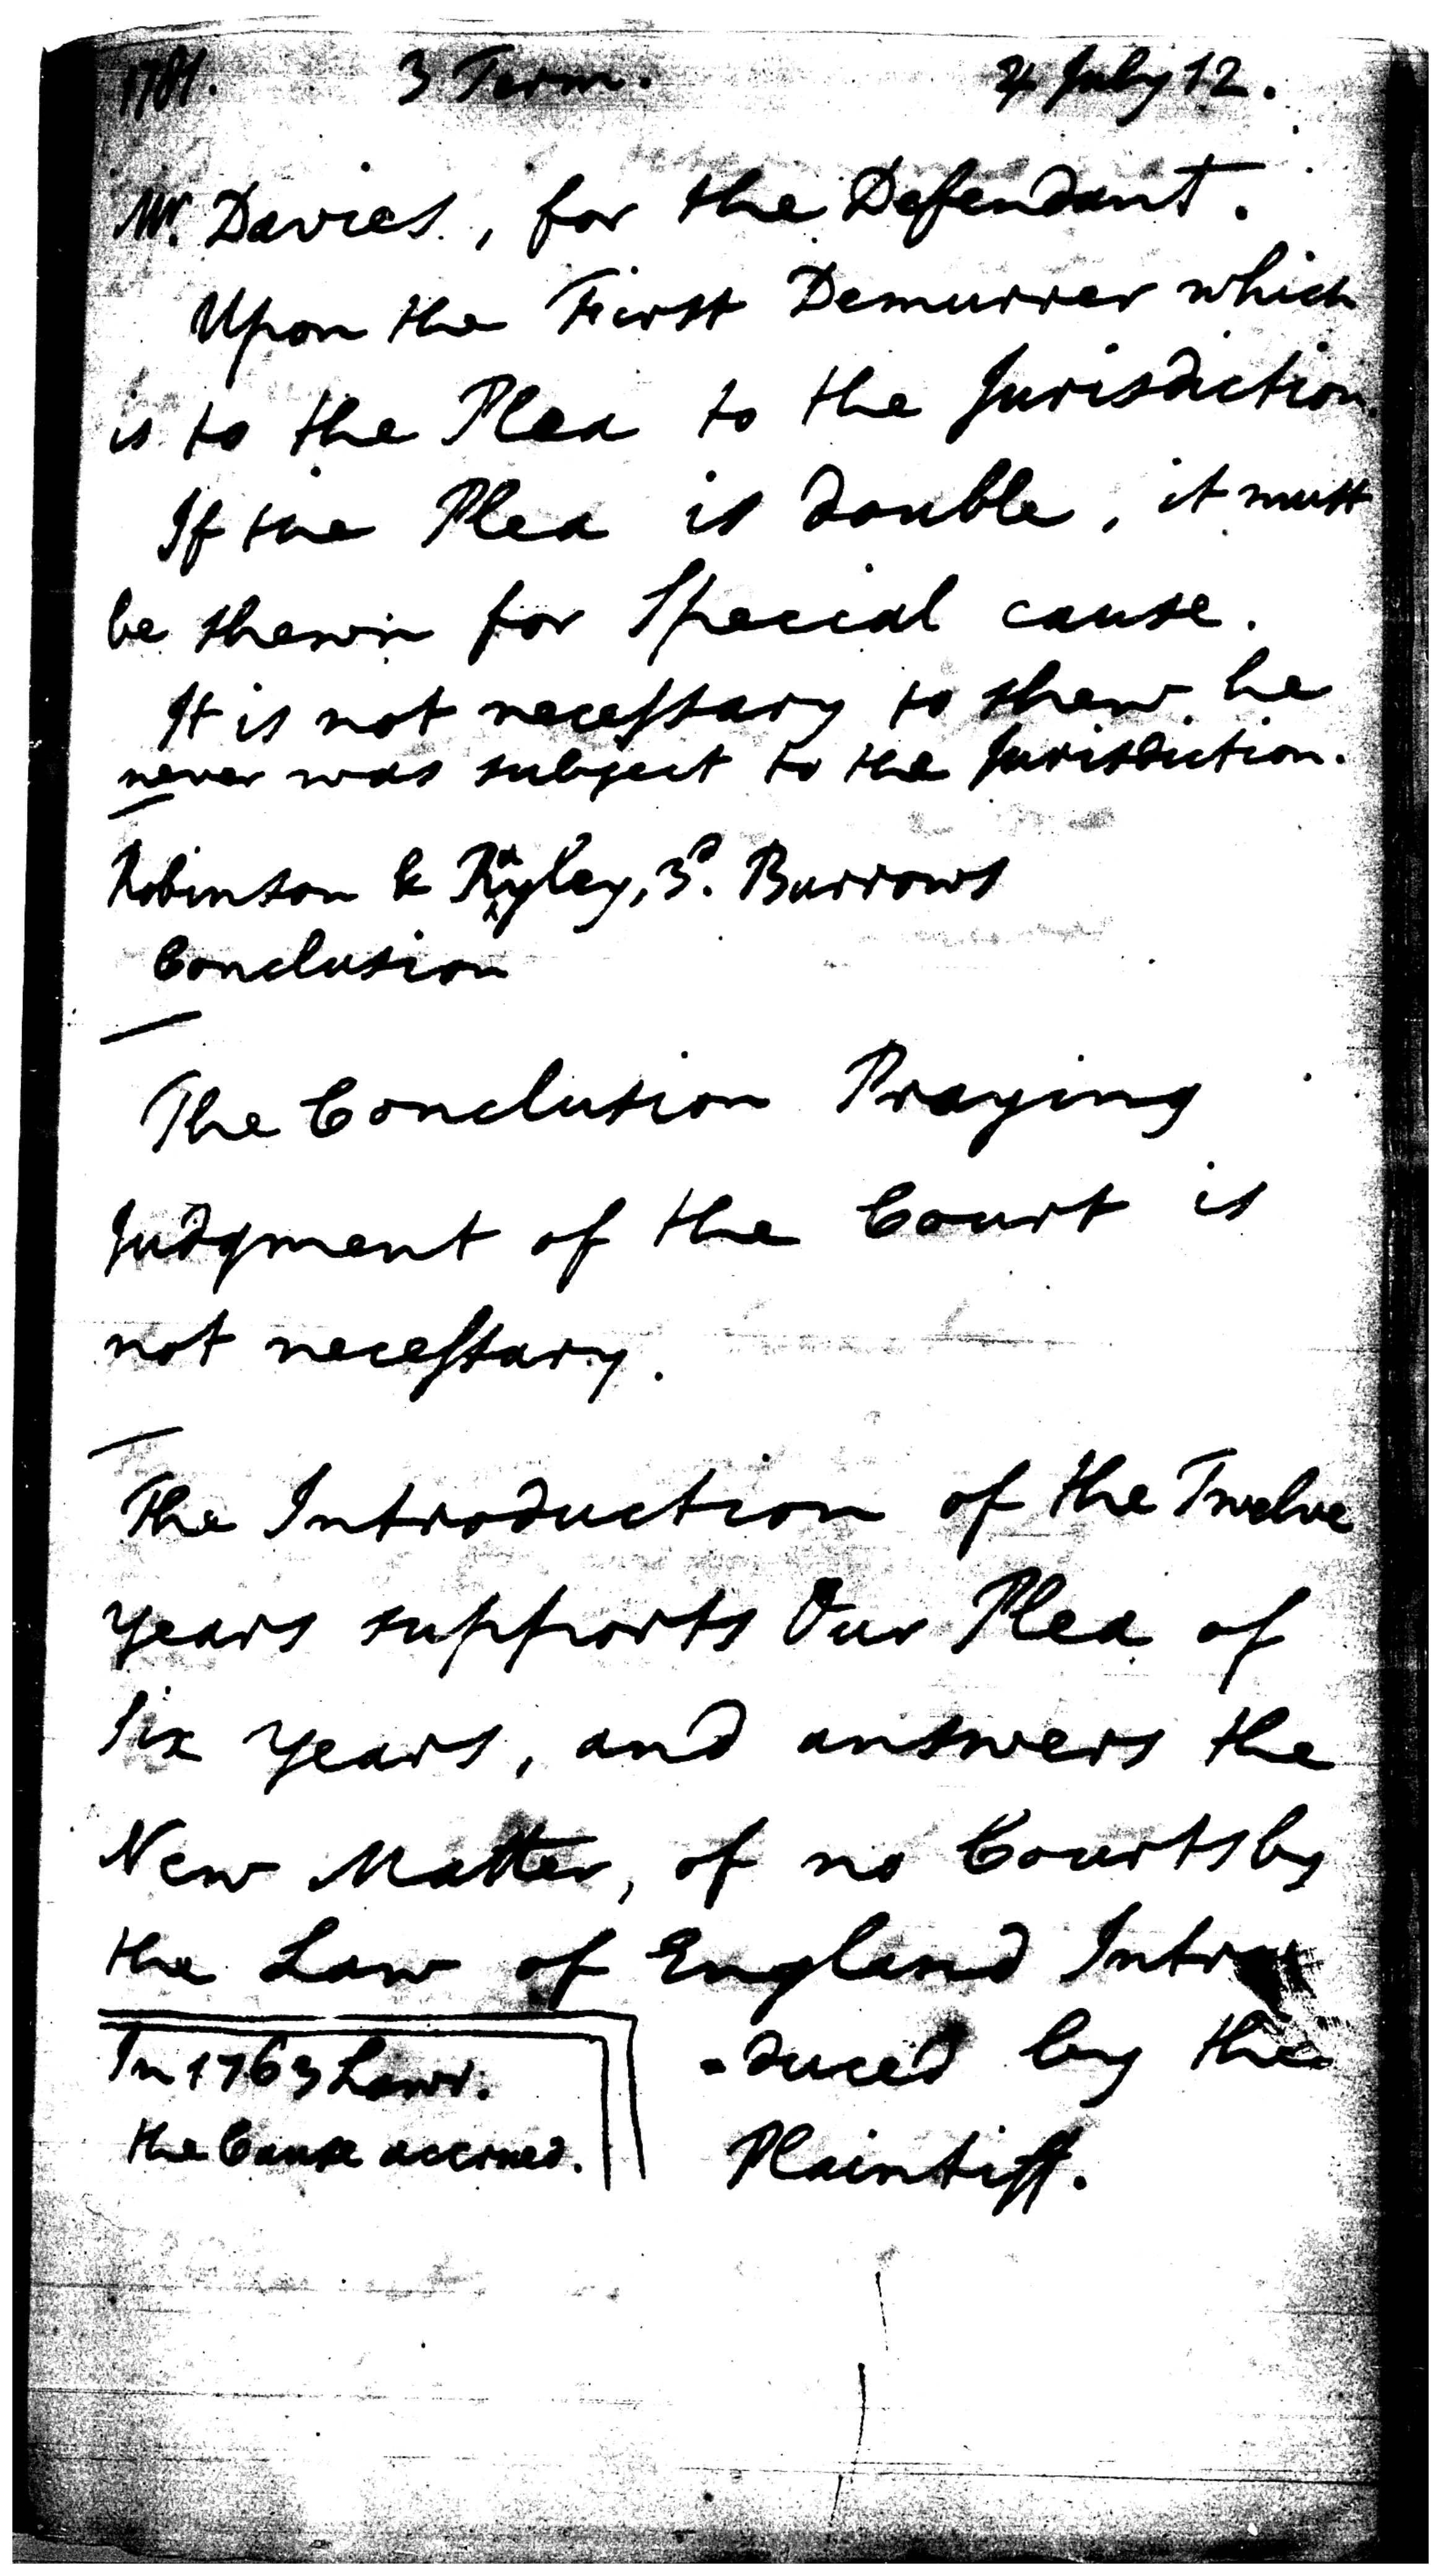 1781. 3 Term. ♃ July 12.
Mr. Davies, for the Defendant.
Upon the First Demurrer which
is to the Plea to the Jurisdiction.
If the Plea is double, it must
be shewn for Special cause.
It is not necessary to shew he
never was subject to the Jurisdiction.
Robinson & Rayley, 3d. Burrows
Conclusion
The Conclusion Praying
Judgment of the Court is
not necessary.
The Introduction of the Twelve
years supports Our Plea of
Six years, and answers the
New Matter, of no Courts by
the Law of England Intro
-duced by the
Plaintiff.
In 1763
the Cause accrued.